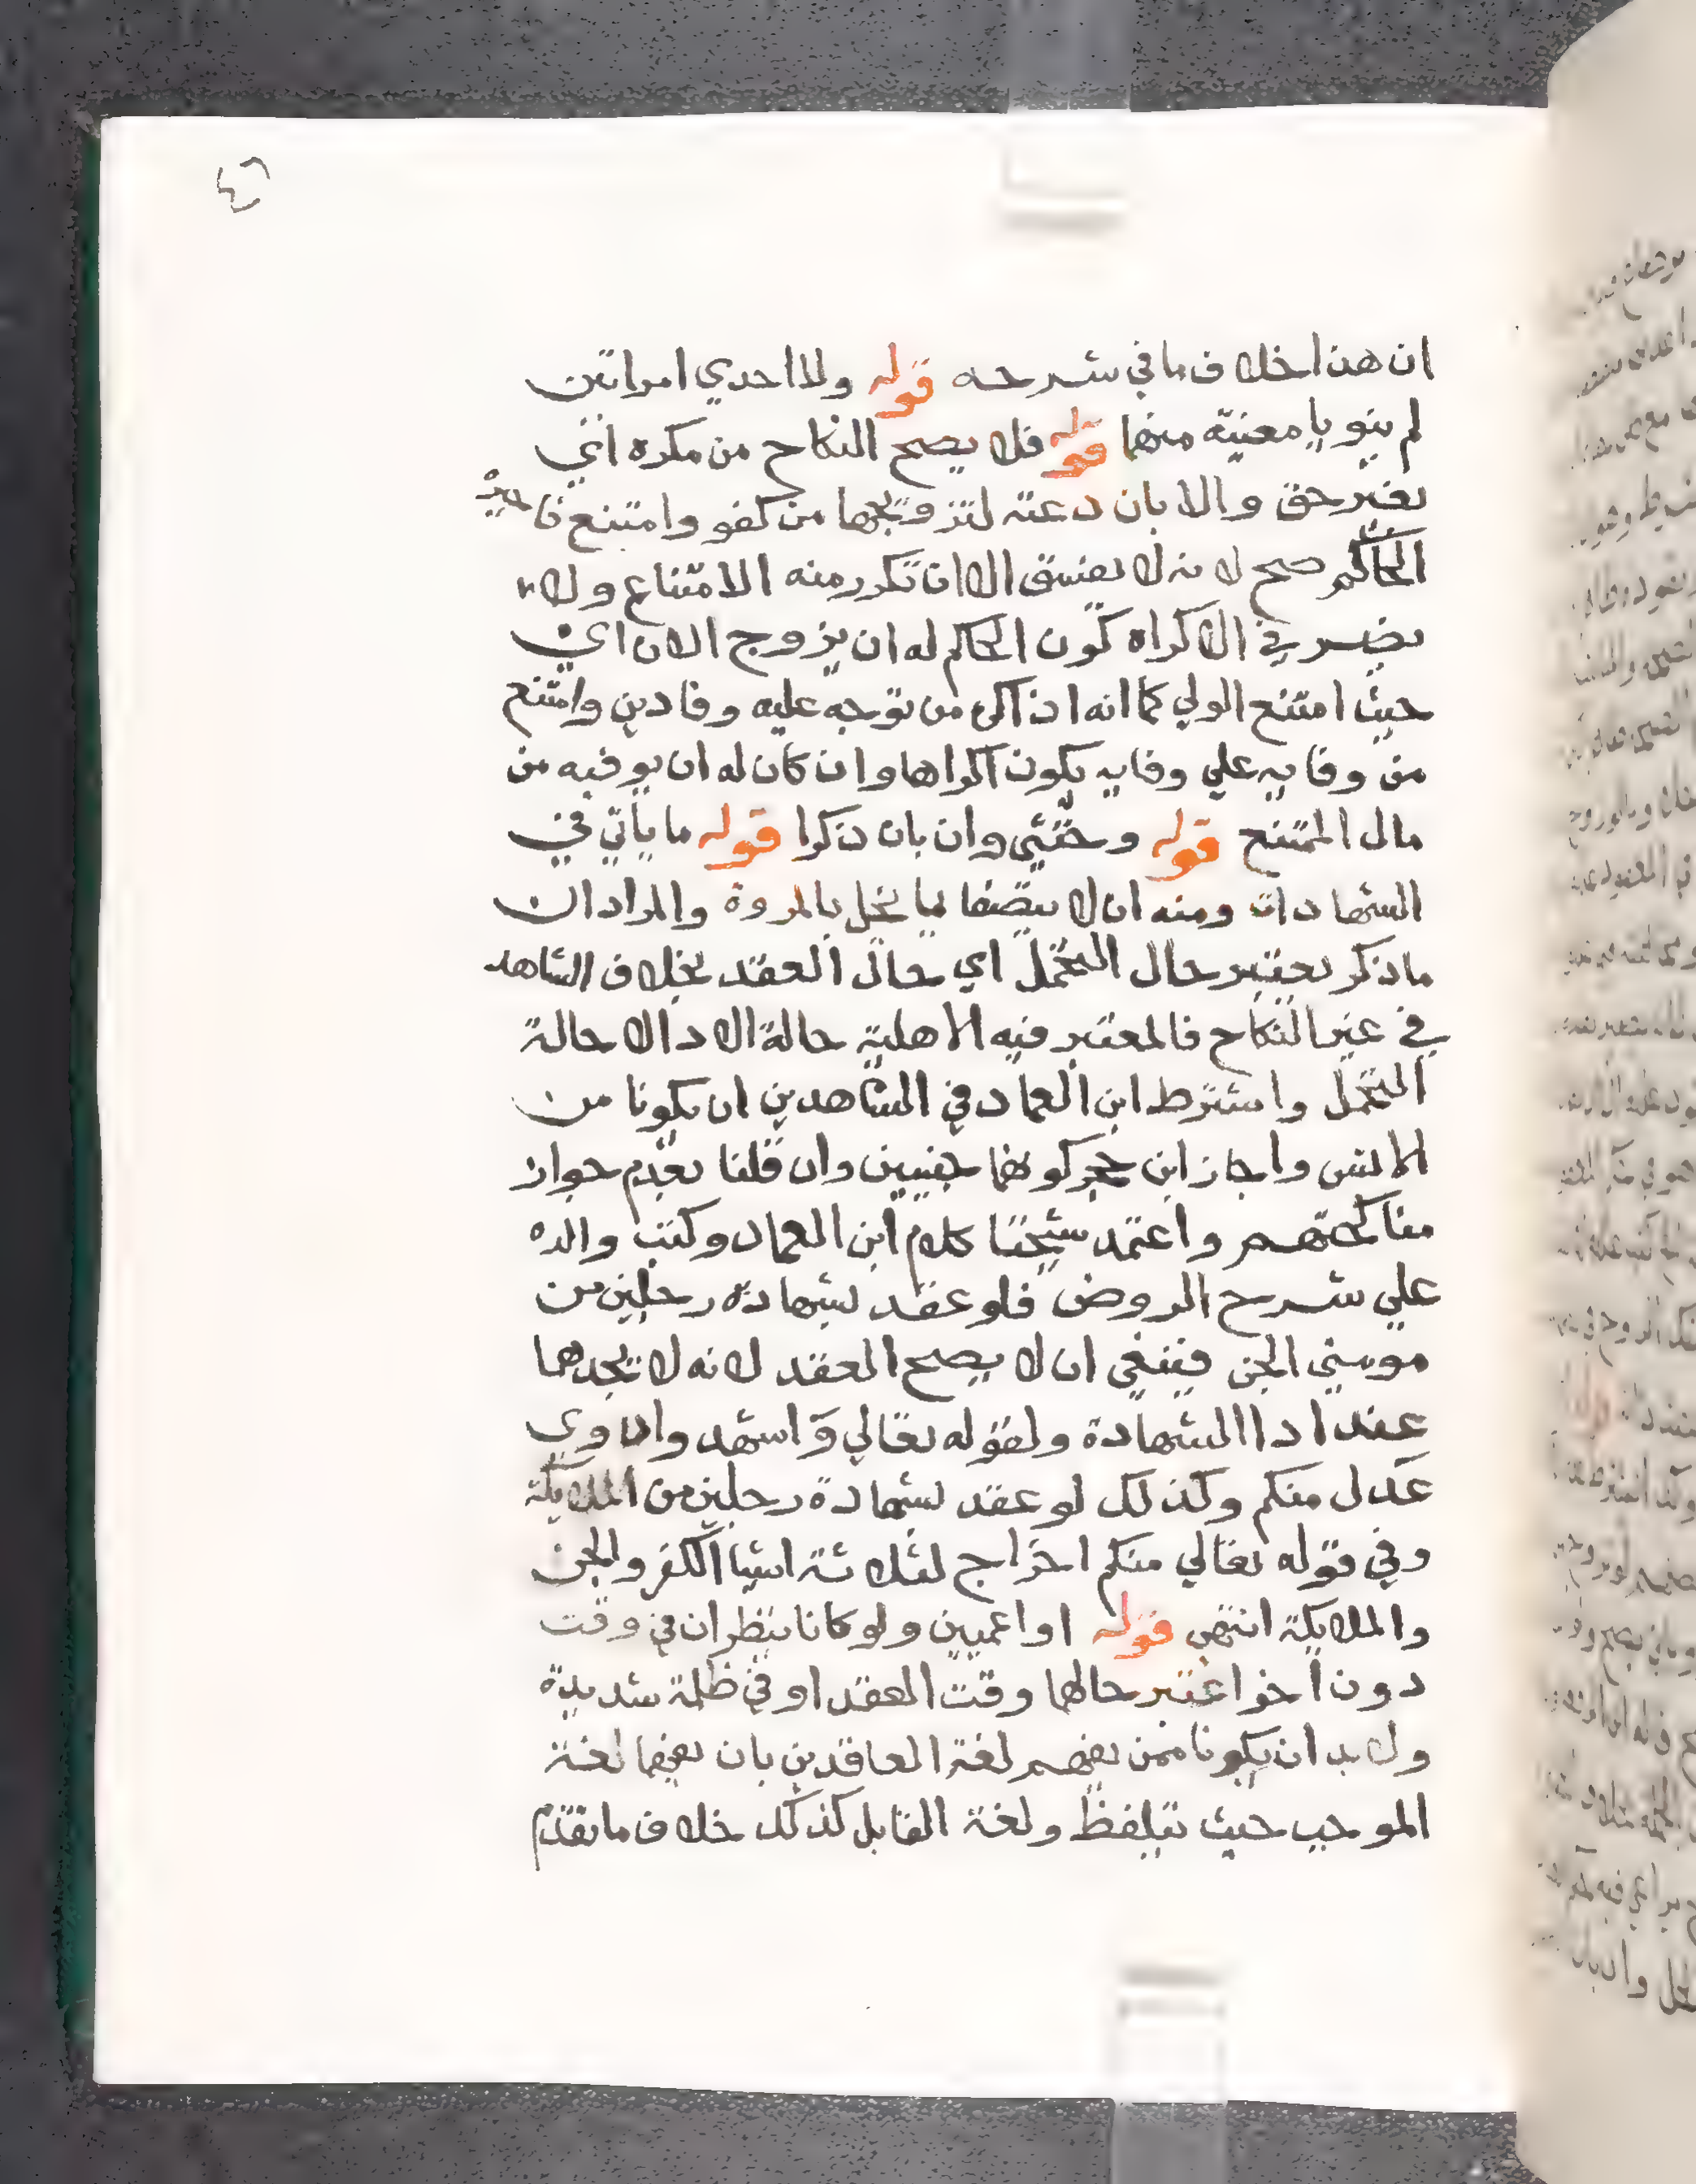 ٤٦
ان هذا خلاف ما في شرحه قوله ولا احدي امراتين
لم ينويا معنية منهما قوله فلا يصح النكاح من مكره اي
بغير حق والا بان دعته لتزويجها من كفو وامتنع فاجبره
الحاكم صح لانه لا يفسق الا ان تكرر منه الامتناع ولا
يضر في الاكراه كون الحاكم له ان يزوج الان اي
حيث امتنع الولي كما انه اذا اكره من توجه عليه وفا دين وامتنع
من وفايه علي وفايه يكون اكراها وان كان له ان يوفيه من
مال الممتنع قوله وخنثي وان بان ذكرا قوله ما ياتي في
الشهادات ومنه ان لا يتصفا بما يخل بالمروة والمراد ان
ما ذكر يعتبر حال التحمل اي حال العقد بخلاف الشاهد
في غير النكاح فالمعتبر فيه الاهلية حالة الادا لا حالة
التحمل واشترط ابن العماد في الشاهدين ان يكونا من
الانس واجاز ابن حجر كونهما جنيين وان قلنا بعدم جواز
مناكحتهم واعتمد شيخنا كلام ابن العماد وكتب والده
علي شرح الروض فلو عقد بشهادة رجلين من
مومني الجن فينبغي ان لا يصح العقد لانه لا يجدهما
عند ادا الشهادة ولقوله تعالي واشهدوا ذوي
عدل منكم وكذلك لو عقد بشهادة رجلين من الملايكة
وفي قوله تعالي منكم اخراج لثلاثة اشيا الكفر والجن
والملايكة انتهي قوله او اعميين ولو كانا ينظران في وقت
دون اخر اعتبر حالهما وقت العقد او في ظلمة شديدة
ولا بد ان يكونا ممن يفهم لغة العاقدين بان يفهما لغة
الموجب حيث تتلفظ ولغة القابل كذلك خلاف ما تقدم